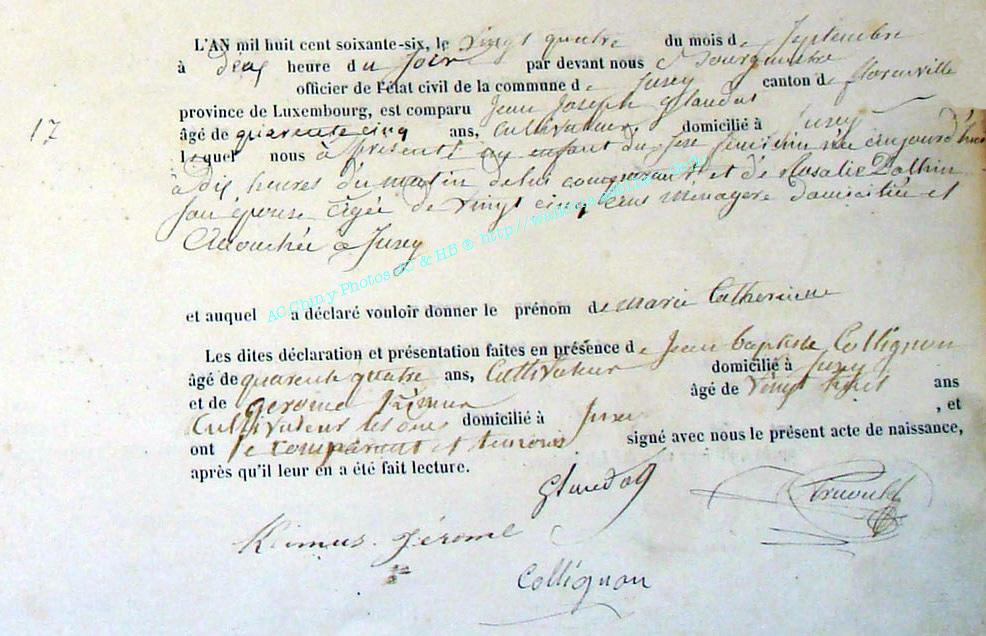 L'AN mil huit cent soixante-six, le vingt quatre du mois de Septembre
à dix heure du soir par devant nous Bourgmestre
officier de l'état civil de la commune de Izel canton de florenville
province de Luxembourg, est comparu Jean Joseph Glaudot
âgé de quarante cinq ans, Cultivateur, domicilié à
lequel nous à présenté un enfant du sexe féminin née aujourd'hui
à dix heures du matin de lui comparant et de Rosalie
son épouse âgée de vingt cinq ans ménagère domiciliée et
accouchée à
et auquel a déclaré vouloir donner le prénom de marie Catherinne
Les dites déclaration et présentation faites en présence de Jean baptiste Collignon
âgé de quarente quatre ans, Cultivateur domicilié à
et de Gerome âgé de vingt huit ans
Cultivateur domicilié à , et
ont le comparant et temoins signé avec nous le présent acte de naissance,
après qu'il leur en a été fait lecture.
17
Glaudot
Jérome
Collignon
AC Chiny Photos & HB ® http//